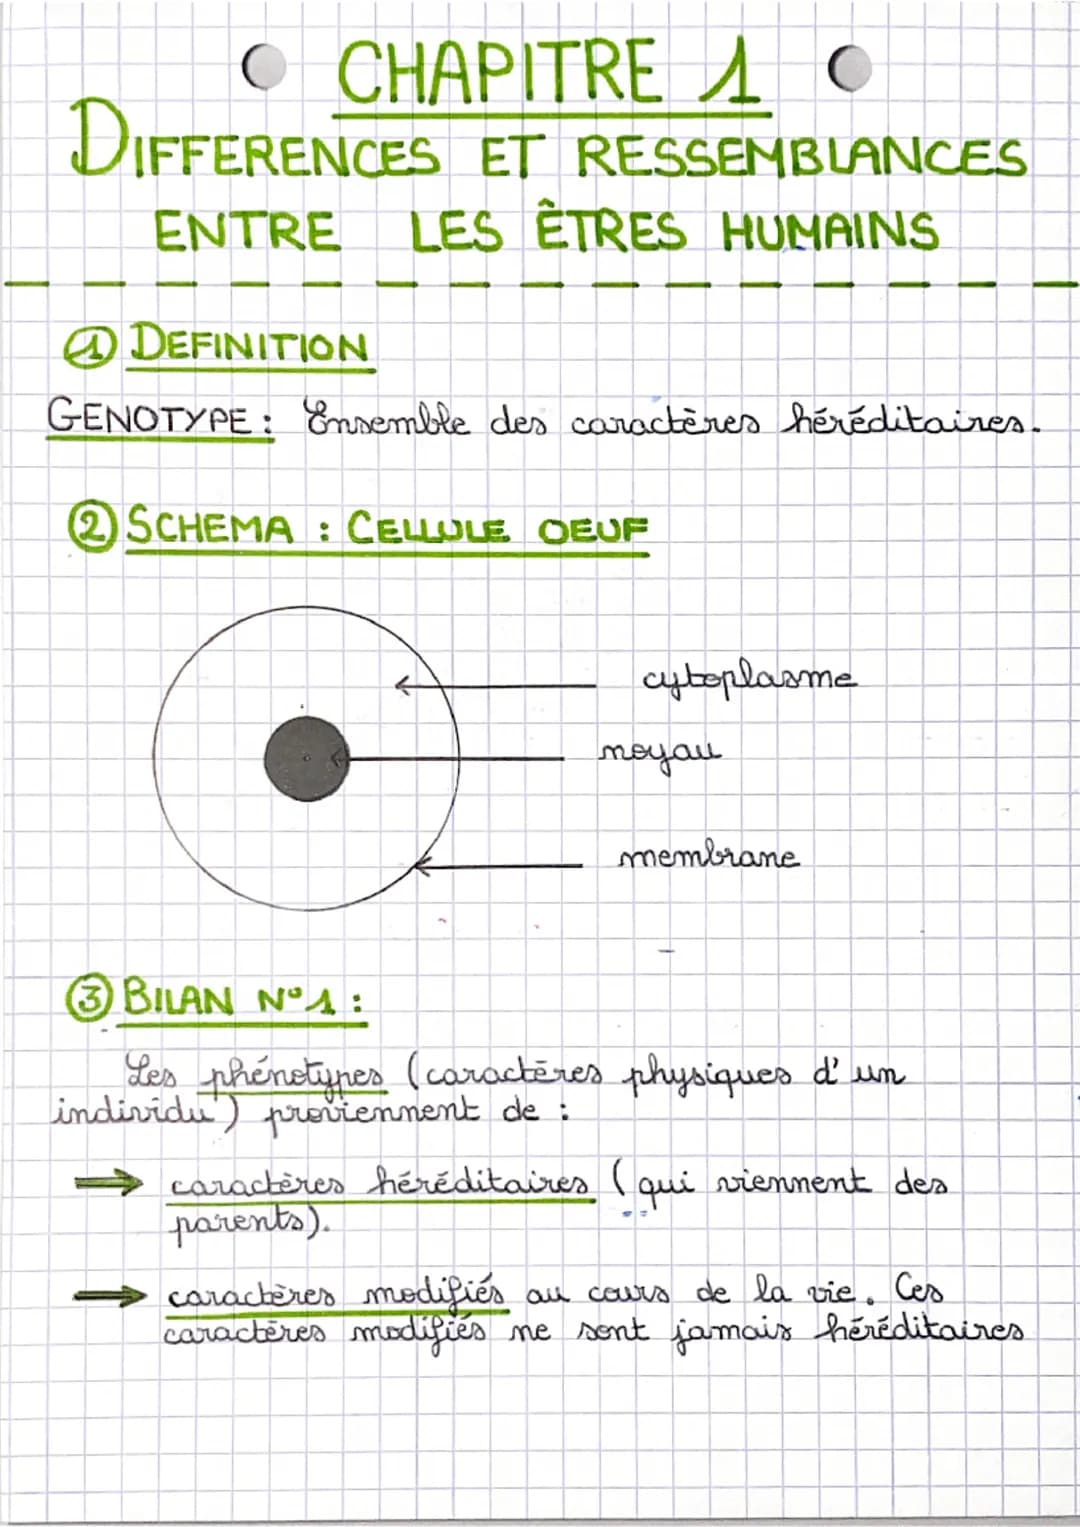 CHAPITRE 1
DIFFERENCES ET RESSEMBLANCES
ENTRE LES ÊTRES HUMAINS
① DEFINITION
GENOTYPE : Ensemble des caractères héréditaires.
② SCHEMA : CELLULE OEUF
cytoplasme
noyau
membrane
③ BILAN N°1 :
Les phénotypes (caractères physiques d'un
individu) proviennent de :
→ caractères héréditaires (qui viennent des
parents).
→ caractères modifiés au cours de la vie. Ces
caractères modifiés ne sont jamais héréditaires